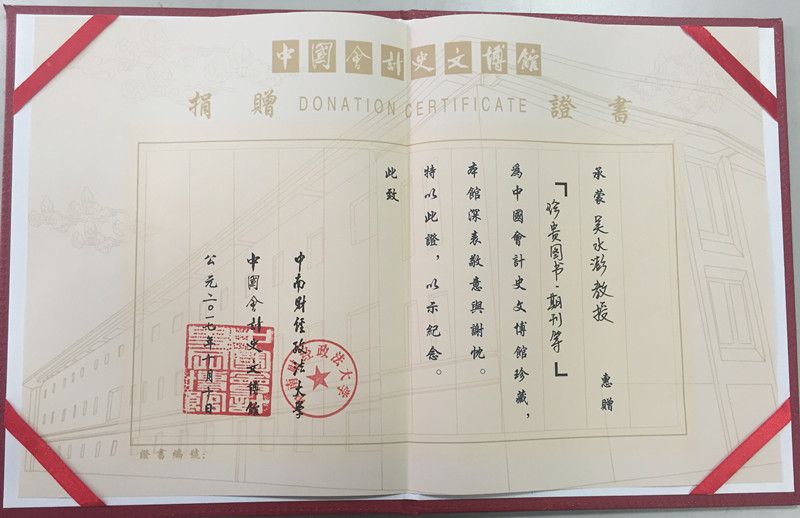 中國會計史文博館
捐贈 DONATION CERTIFICATE 證書
承蒙 吴水澎教授 惠贈
「珍贵图书·期刊等」
為中國會計史文博館珍藏，
本館深表敬意與謝忱。
特以此證，以示紀念。
此致
中南财经政法大學
中國會計史文博館
公元二〇一七年十月十日
證書編號：